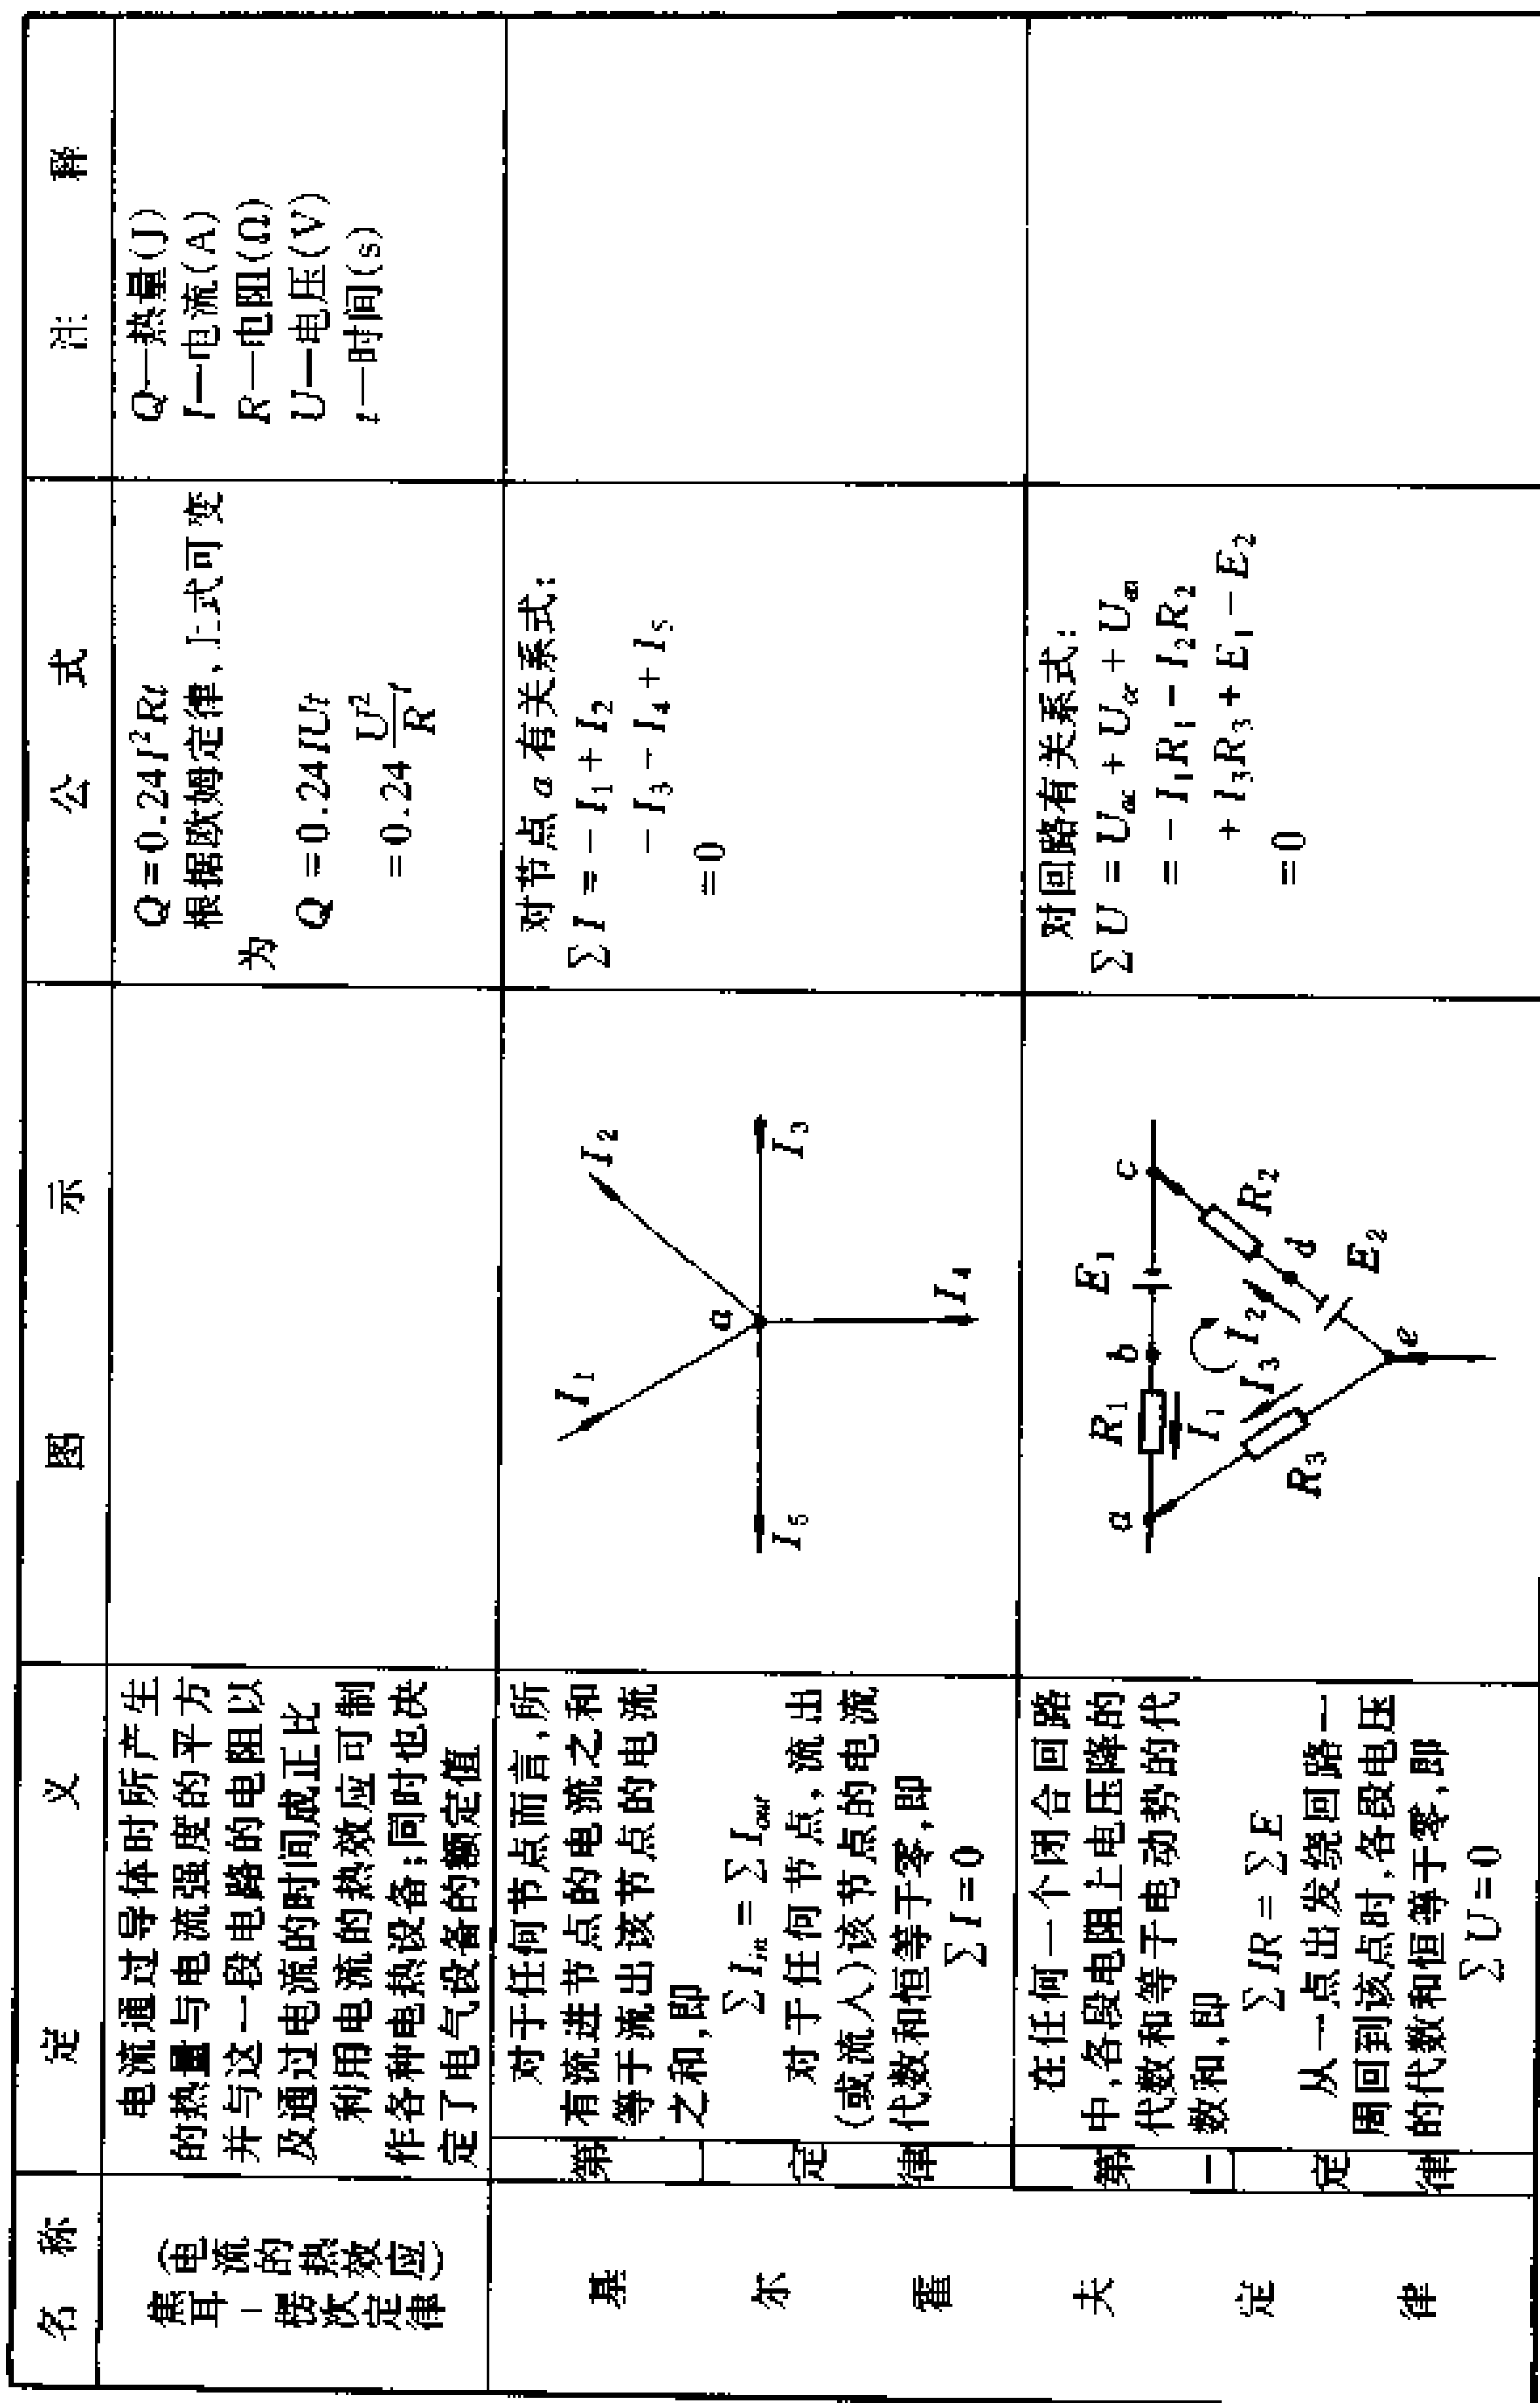 名 称
定 义
图 示
公 式
注 释
焦耳-楞次定律
(电流的热效应)
电流通过导体时所产生
的热量与电流强度的平方
并与这一段电路的电阻以
及通过电流的时间成正比
利用电流的热效应可制
作各种电热设备;同时也决
定了电气设备的额定值
Q=0.24I²Rt
根据欧姆定律,上式可变
为
Q=0.24IUt
=0.24 U²/R t
Q—热量(J)
I—电流(A)
R—电阻(Ω)
U—电压(V)
t—时间(s)
基尔霍夫定律
第一定律
对于任何节点而言,所
有流进节点的电流之和
等于流出该节点的电流
之和,即
∑I_in=∑I_out
对于任何节点,流出
(或流人)该节点的电流
代数和恒等于零,即
∑I=0
I₁
I₂
a
I₅
I₃
I₄
对节点 a 有关系式:
∑I=-I₁+I₂
-I₃-I₄+I₅
=0
第二定律
在任何一个闭合回路
中,各段电阻上电压降的
代数和等于电动势的代
数和,即
∑IR=∑E
从一点出发绕回路一
周回到该点时,各段电压
的代数和恒等于零,即
∑U=0
a
R₁
b
E₁
c
I₁
I₃
I₂
R₂
d
R₃
E₂
e
对回路有关系式:
∑U=U_ac+U_ce+U_ea
=-I₁R₁-I₂R₂
+I₃R₃+E₁-E₂
=0